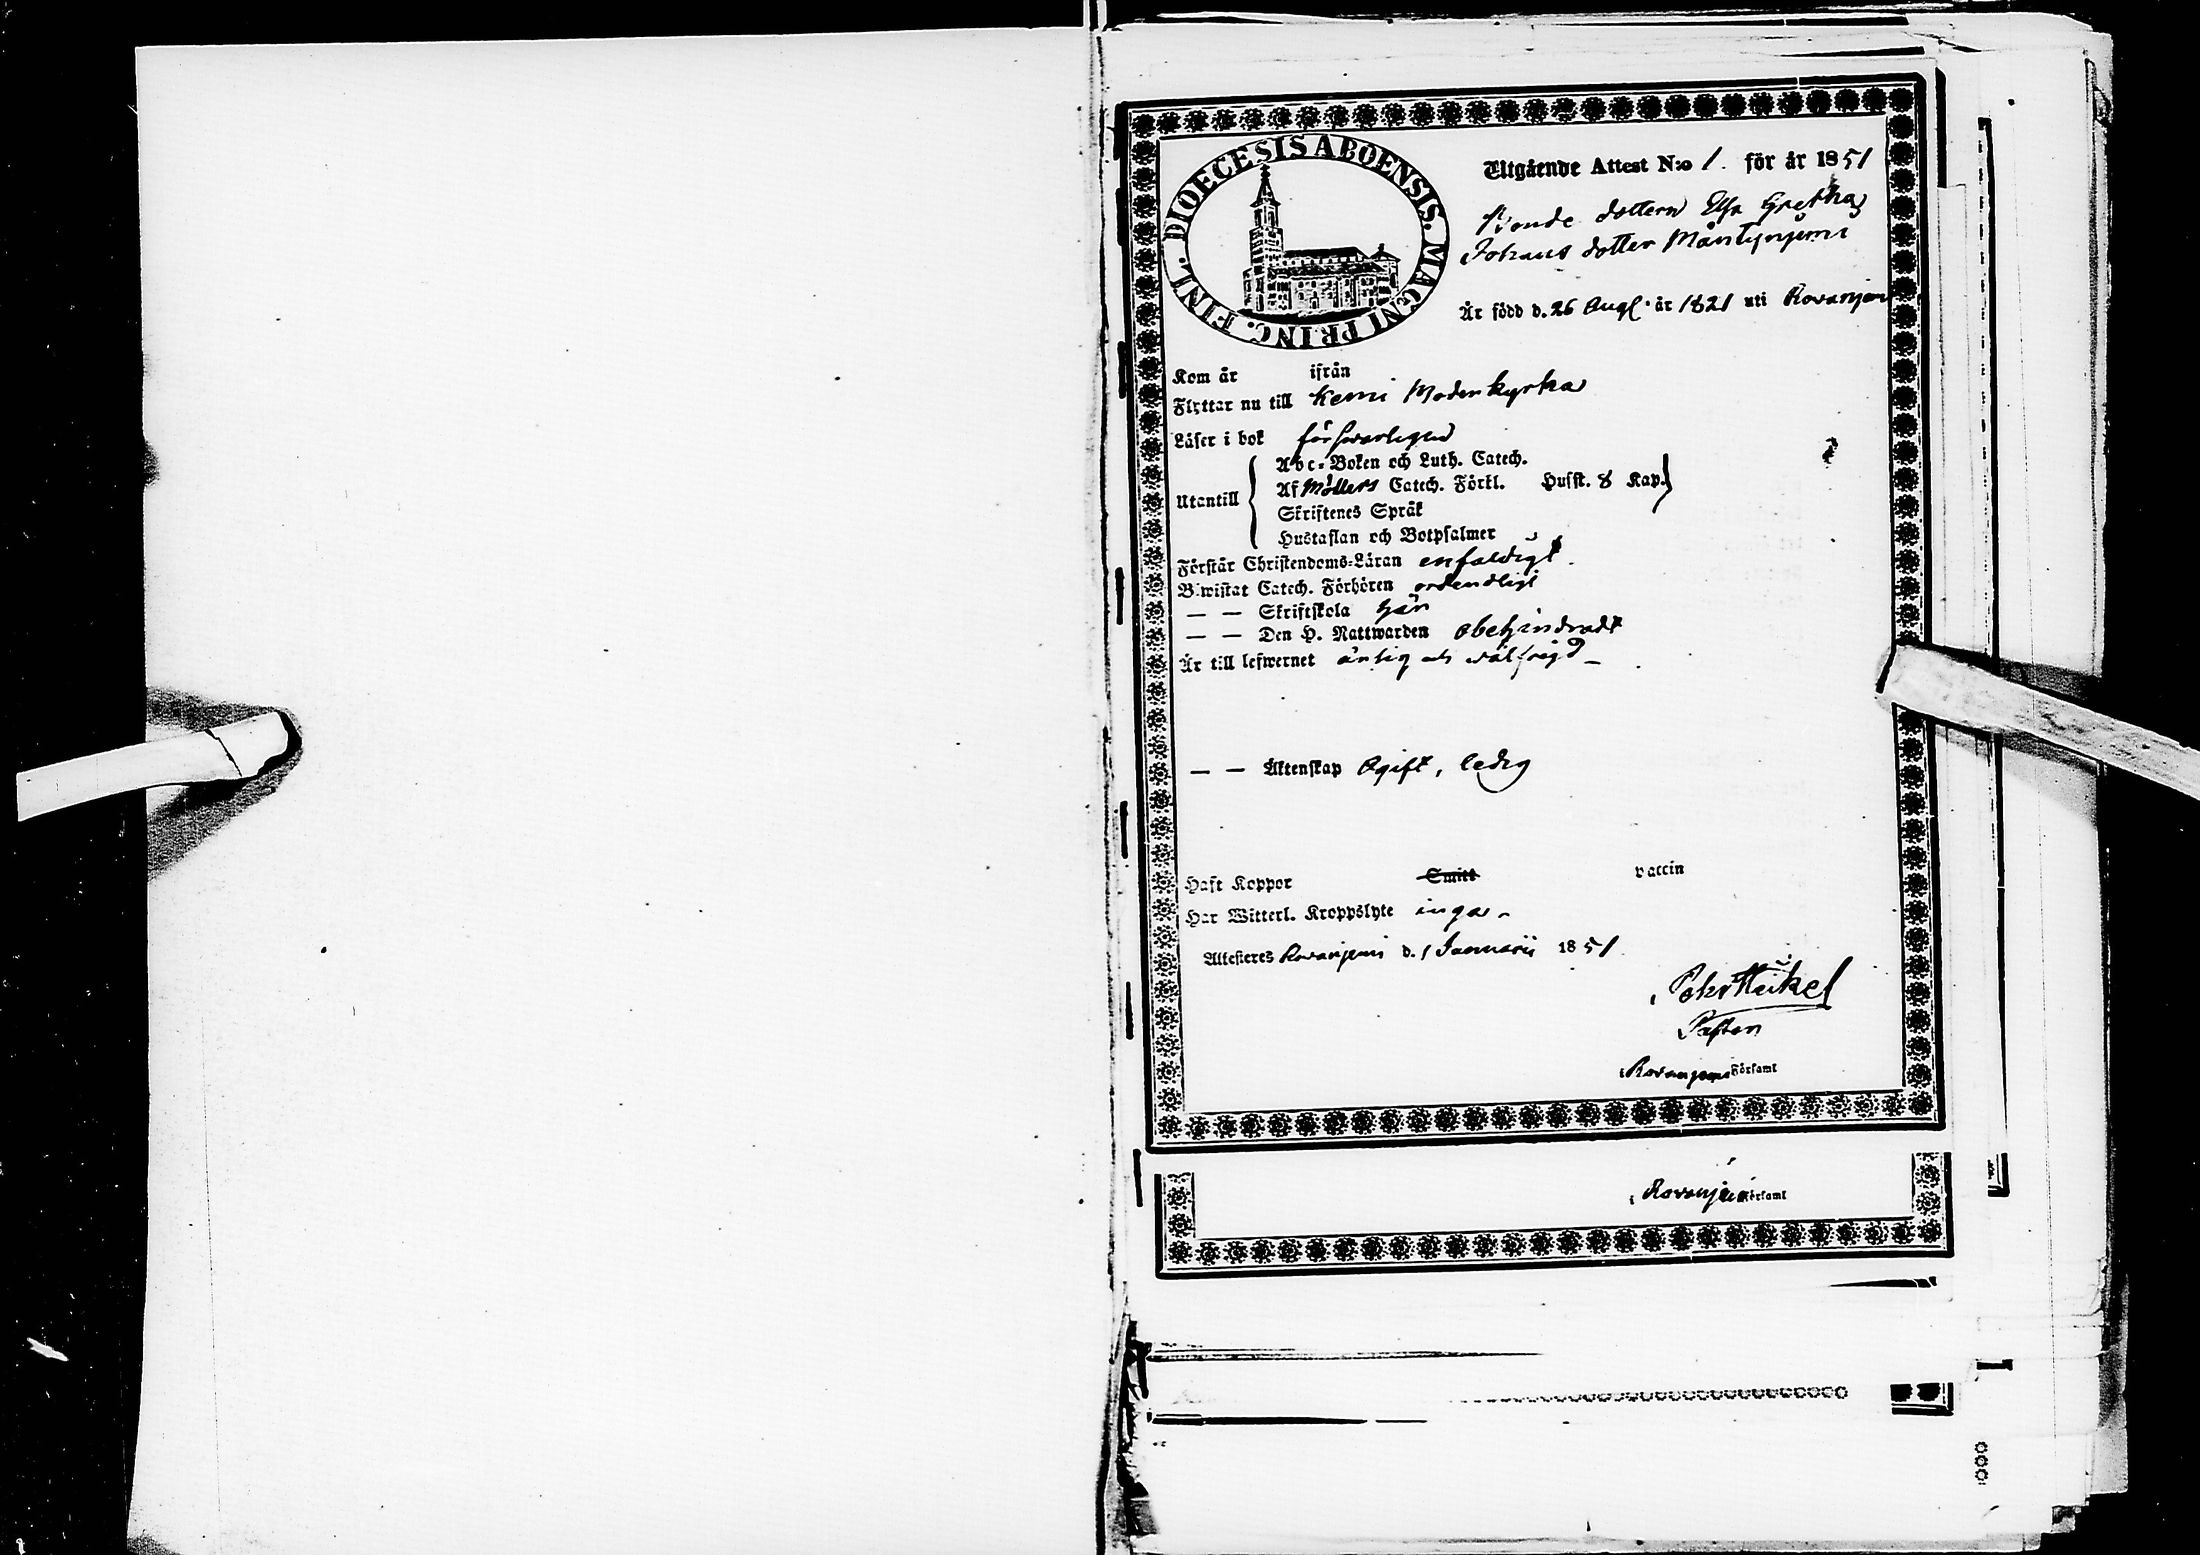 DIOECESIS ABOENSIS. MAGNI PRINC. FINL.
Utgående Attest N:o 1. för år 1851
Bonde dottern Elsa Gretha
Johans dotter Mäntyniemi
Är född d. 26 Aug. år 1821 uti Rovaniemi
Kom år ifrån
Flyttar nu till Kemi Moderkyrka
Läser i bok försvarligen
Abc-Boken och Luth. Catech.
Utantill Af Möllers Catech. Förkl. Hufst. 8 Kap.
Skriftenes Språk
Hustaflan och Botpsalmer
Förstår Christendoms-Läran enfaldigt.
Biwistat Catech. Förhören ordendligt
— — Skriftskola här
— — Den H. Nattwarden obehindradt
Är till lefwernet ärlig och välfrejd –
— — Äktenskap Ogift, ledig
Haft Koppor Smitt vaccin
Har Witterl. Kroppslyte inga –
Attesteres Rovaniemi d. 1 Januarii 1851.
Heikel
Pastor
i Rovaniemi Församl
i Rovaniemi Församl